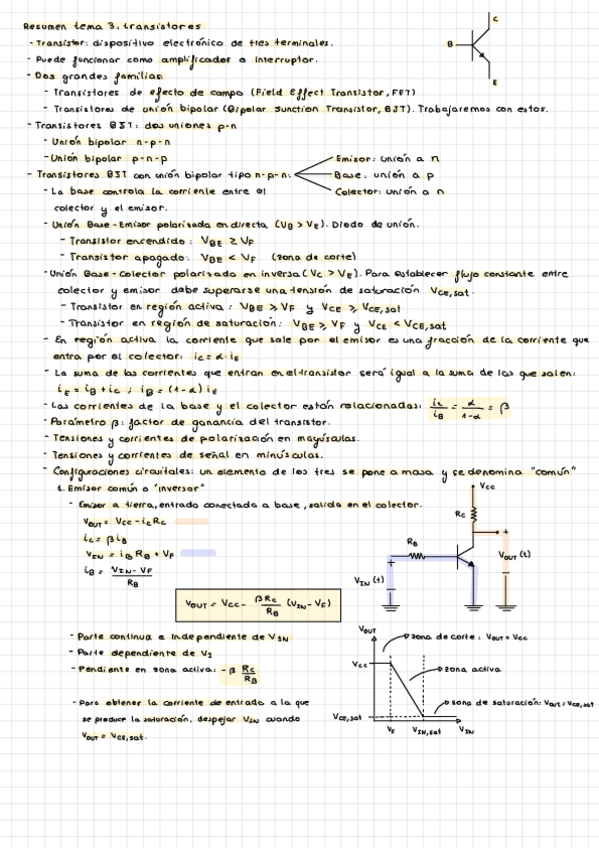 Resumen tema 3. transistores
C
B
E
- Transistor: dispositivo electrónico de tres terminales.
- Puede funcionar como amplificador o interruptor.
- Dos grandes familias
- Transistores de efecto de campo (Field Effect Transistor, FET)
- Transistores de unión bipolar (Bipolar Junction Transistor, BJT). Trabajaremos con estos.
- Transistores BJT: dos uniones p-n
- Unión bipolar n-p-n
- Unión bipolar p-n-p
- Transistores BJT con unión bipolar tipo n-p-n:
Emisor: unión a n
Base: unión a p
Colector: unión a n
- La base controla la corriente entre el
colector y el emisor.
- Unión Base-Emisor polarizada en directa (VB > VE). Diodo de unión.
- Transistor encendido: VBE ≥ VF
- Transistor apagado: VBE < VF (zona de corte)
- Unión Base-Colector polarizada en inversa (VC > VE). Para establecer flujo constante entre
colector y emisor debe superarse una tensión de saturación VCE,sat.
- Transistor en región activa: VBE ≥ VF y VCE ≥ VCE,sat
- Transistor en región de saturación: VBE ≥ VF y VCE < VCE,sat
- En región activa la corriente que sale por el emisor es una fracción de la corriente que
entra por el colector: iC = α · iE
- La suma de las corrientes que entran en el transistor será igual a la suma de las que salen:
iE = iB + iC ; iB = (1-α) iE
- Las corrientes de la base y el colector están relacionadas: iC/iB = α/1-α = β
- Parámetro β: factor de ganancia del transistor.
- Tensiones y corrientes de polarización en mayúsculas.
- Tensiones y corrientes de señal en minúsculas.
- Configuraciones circuitales: un elemento de los tres se pone a masa y se denomina "común"
1. Emisor común o "inversor"
- Emisor a tierra, entrada conectada a base, salida en el colector.
VOUT = VCC - iC RC
iC = β iB
VIN = iB RB + VF
iB = VIN - VF / RB
VOUT = VCC - βRC/RB (VIN - VF)
VCC
RC
RB
+
VOUT (t)
-
+
VIN (t)
-
- Parte continua e independiente de VIN
- Parte dependiente de VI
- Pendiente en zona activa: -β RC/RB
- Para obtener la corriente de entrada a la que
se produce la saturación, despejar VIN cuando
VOUT = VCE,sat.
VOUT
zona de corte: VOUT = VCC
VCC
zona activa
zona de saturación: VOUT = VCE,sat
VCE,sat
VF
VIN,sat
VIN